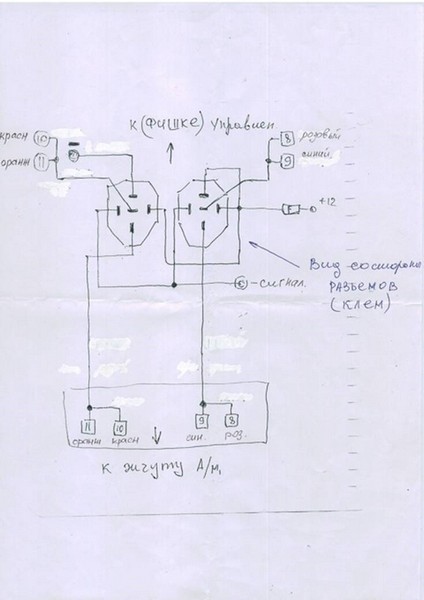 к (фишке) управлен.
красн 10
оранж 11
8 розовый
9 синий
F +12
С -сигнал.
Вид со стороны
разъемов
(клем)
11 10 9 8
оранж красн син. роз.
к жгуту А/м,